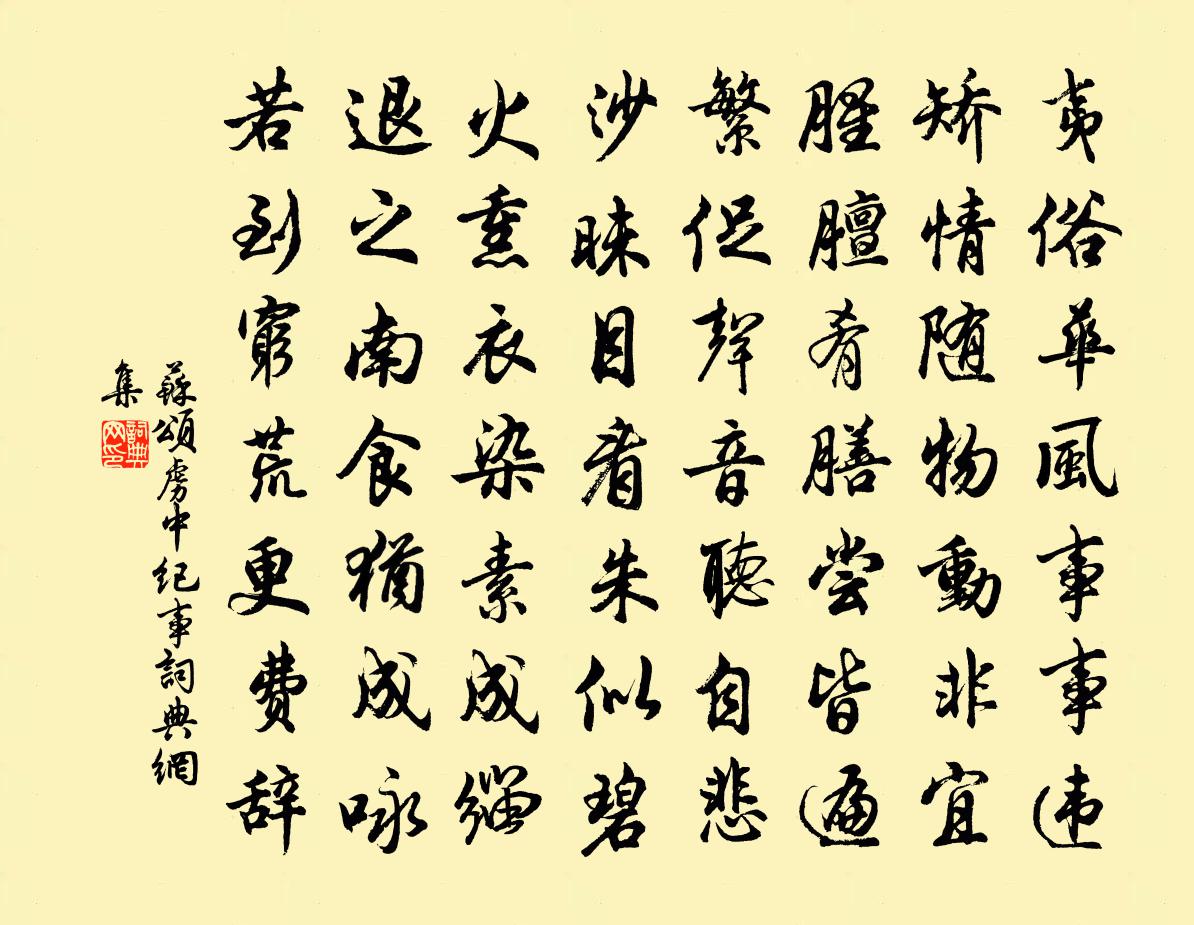 夷俗華風事事违
矫情随物動非宜
腥膻肴膳尝皆遍
繁促聲音聽自悲
沙眯目看朱似碧
火熏衣染素成缁
退之南食犹成咏
若到窮荒更费辞
蘇頌虏中纪事詞典網
集
詞典
网印